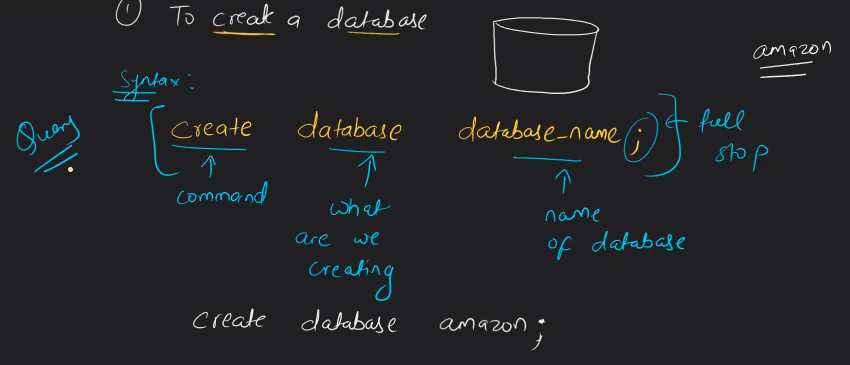 ① To create a database
amazon
Syntax:
Query
create database database_name ;
full
stop
command
what
are we
creating
name
of database
create database amazon;